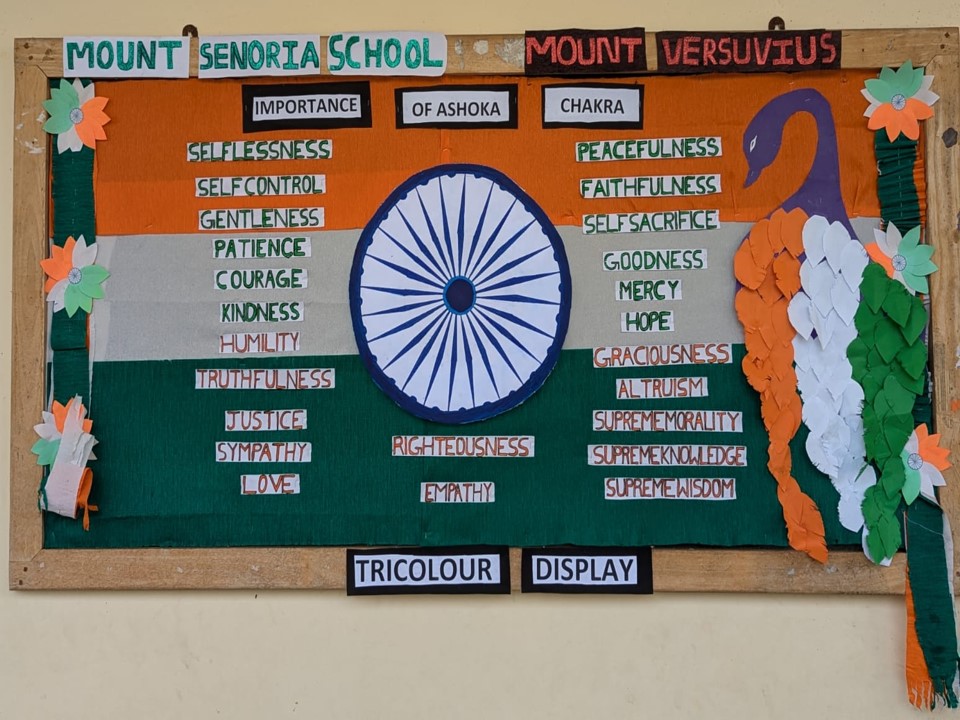 MOUNT SENORIA SCHOOL MOUNT VERSUVIUS
IMPORTANCE OF ASHOKA CHAKRA
SELFLESSNESS
SELFCONTROL
GENTLENESS
PATIENCE
COURAGE
KINDNESS
HUMILITY
TRUTHFULNESS
JUSTICE
SYMPATHY
LOVE
RIGHTEOUSNESS
EMPATHY
PEACEFULNESS
FAITHFULNESS
SELFSACRIFICE
GOODNESS
MERCY
HOPE
GRACIOUSNESS
ALTRUISM
SUPREMEMORALITY
SUPREMEKNOWLEDGE
SUPREMEWISDOM
TRICOLOUR DISPLAY